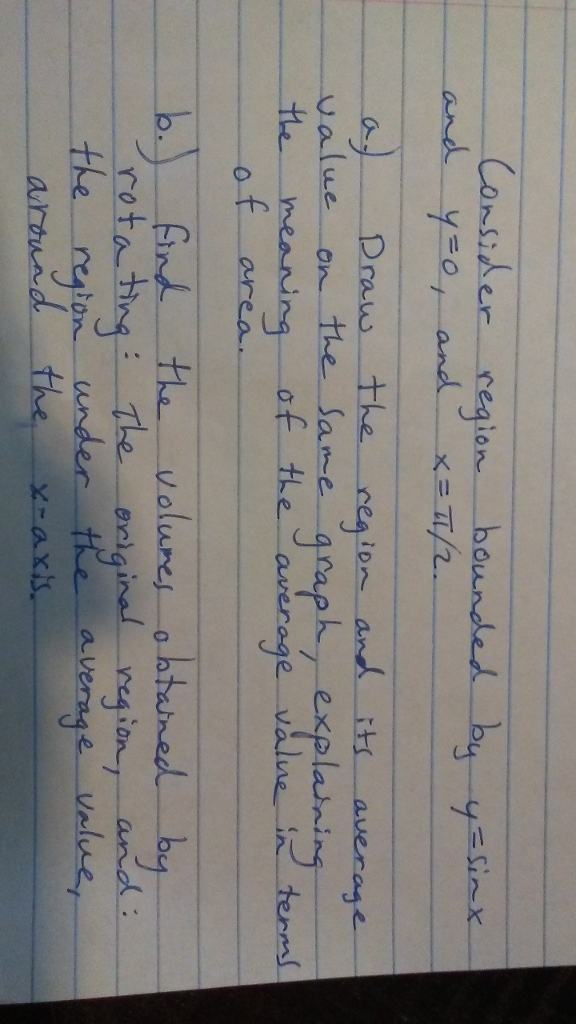 Consider region bounded by y=sinx
and y=0, and x=π/2.
a.) Draw the region and its average
value on the same graph, explaining
the meaning of the average value in terms
of area.
b.) find the volumes obtained by
rotating: The original region, and:
the region under the average value,
around the x-axis.